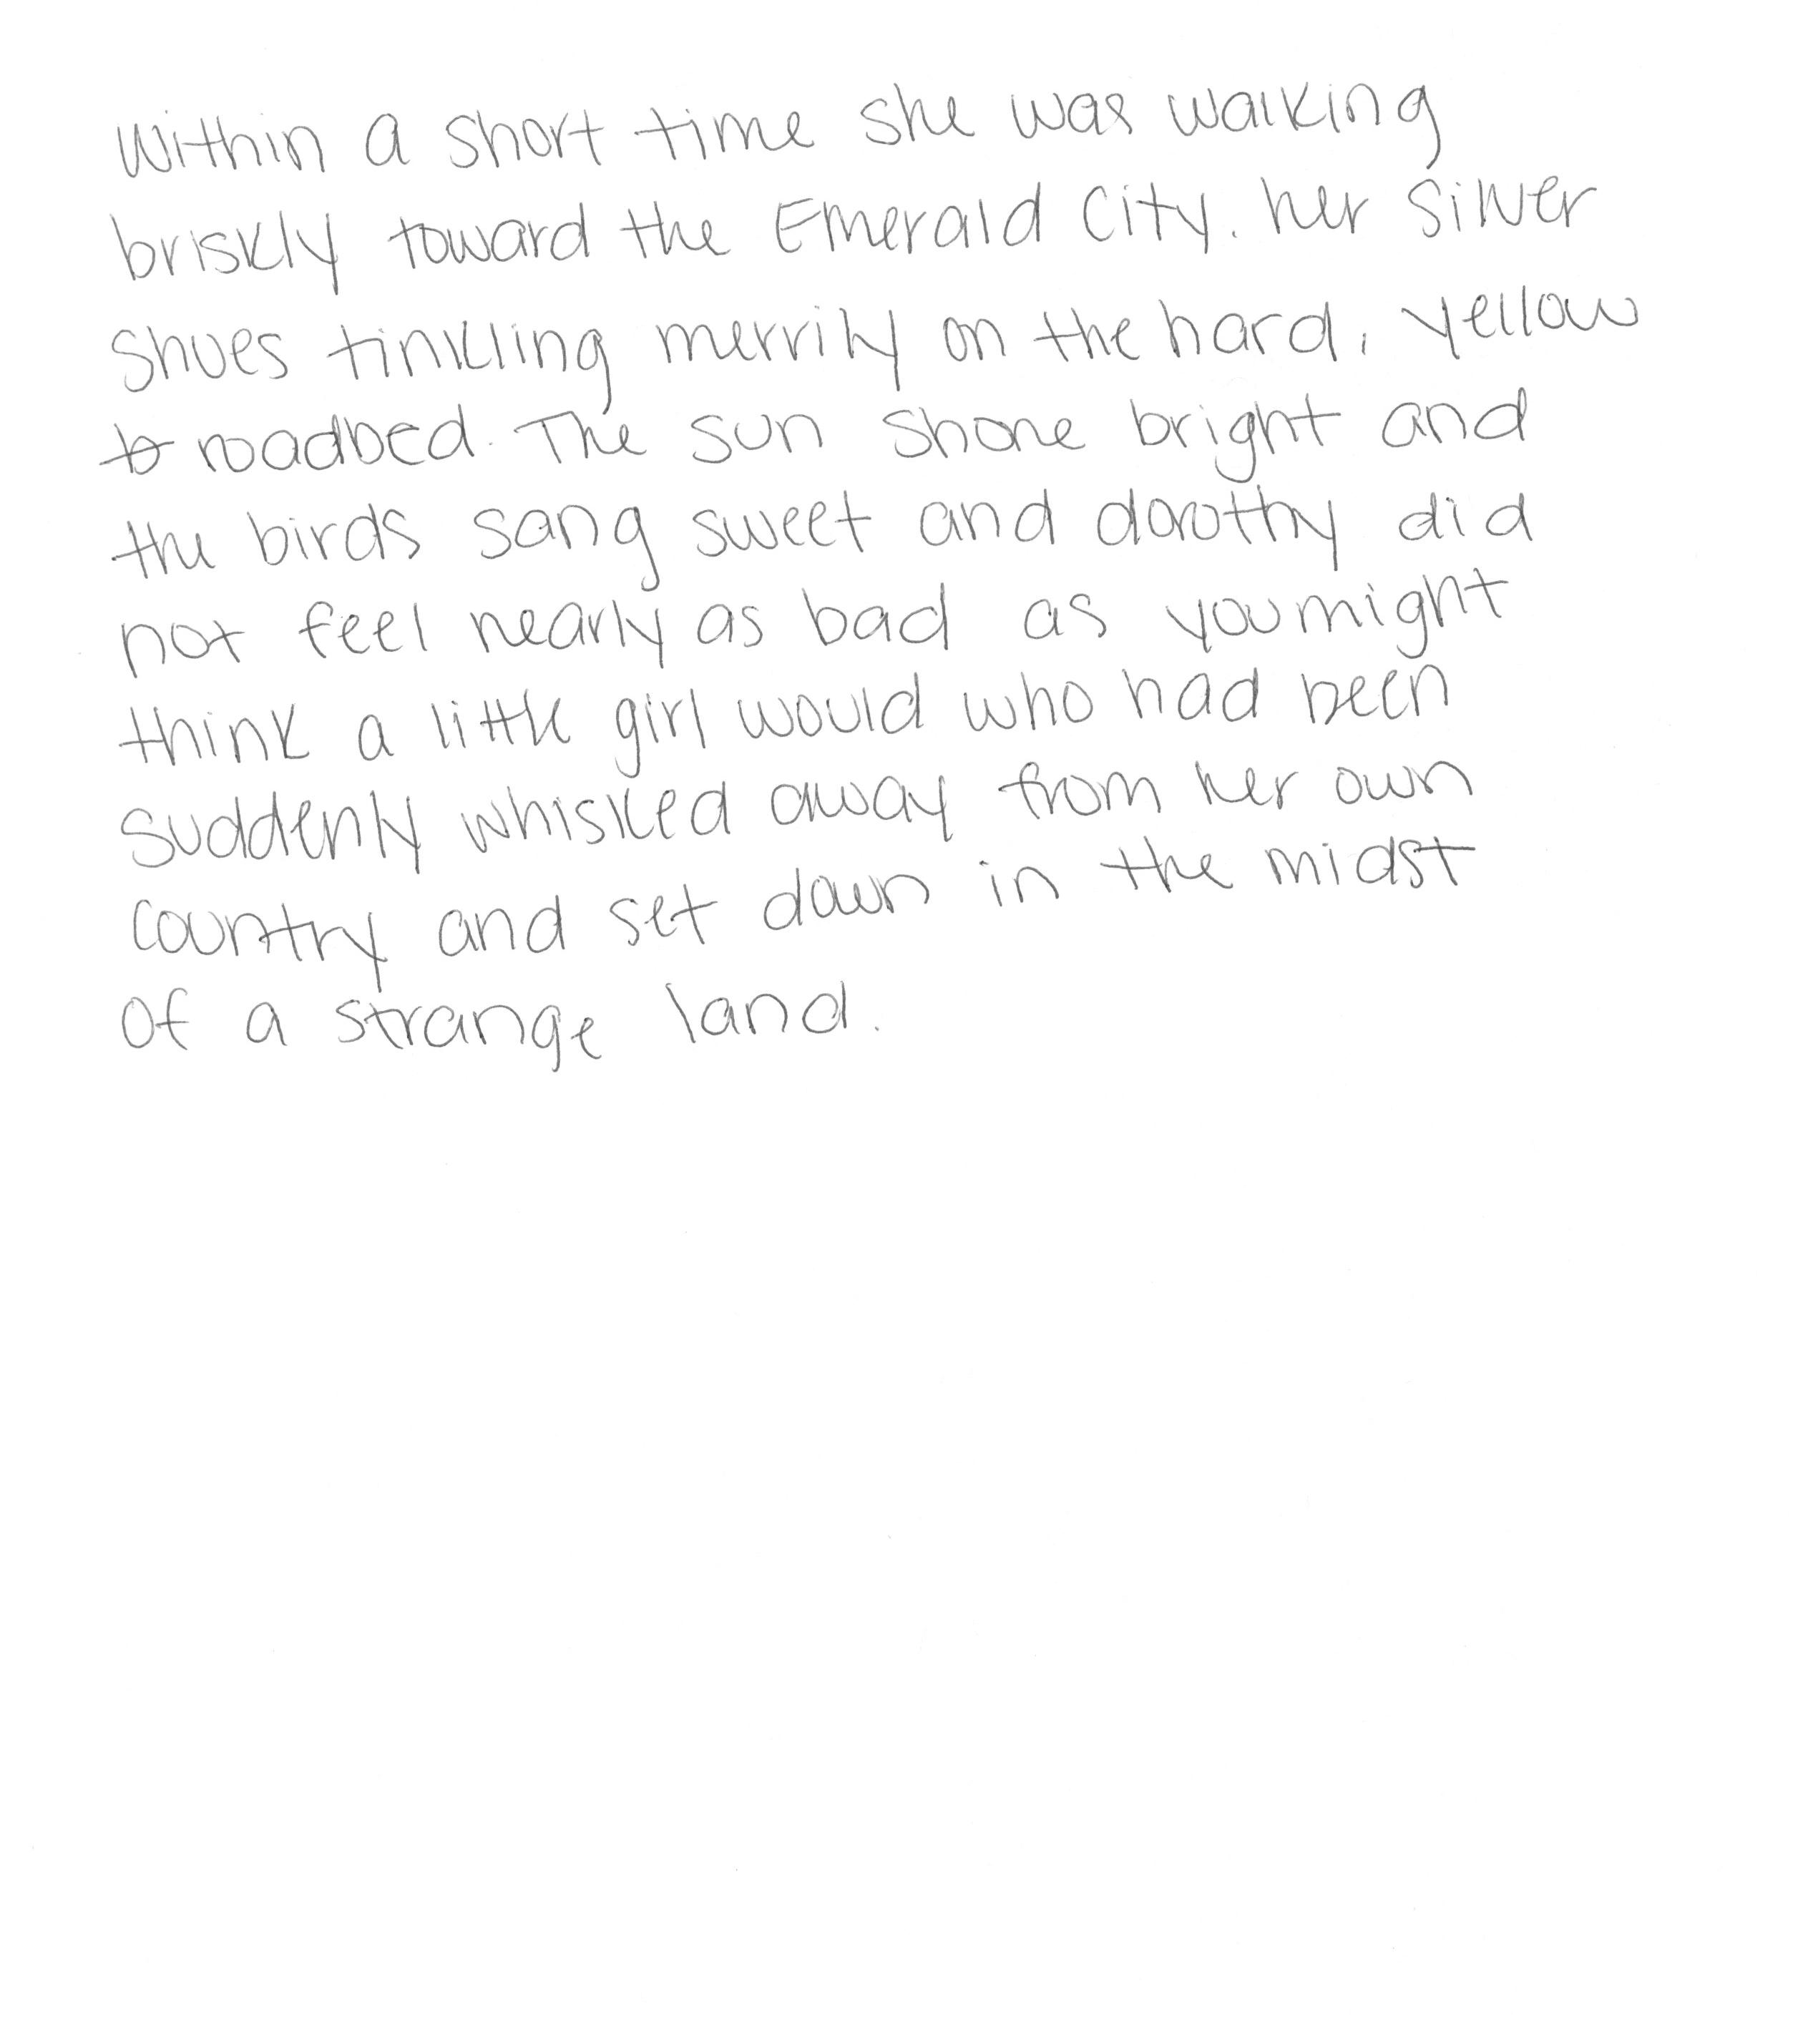 Within a short time she was walking
briskly toward the Emerald City. her silver
shoes tinkling merrily on the hard, yellow
roadbed. The sun shone bright and
the birds sang sweet and dorothy did
not feel nearly as bad as you might
think a little girl would who had been
suddenly whisked away from her own
country and set down in the midst
of a strange land.